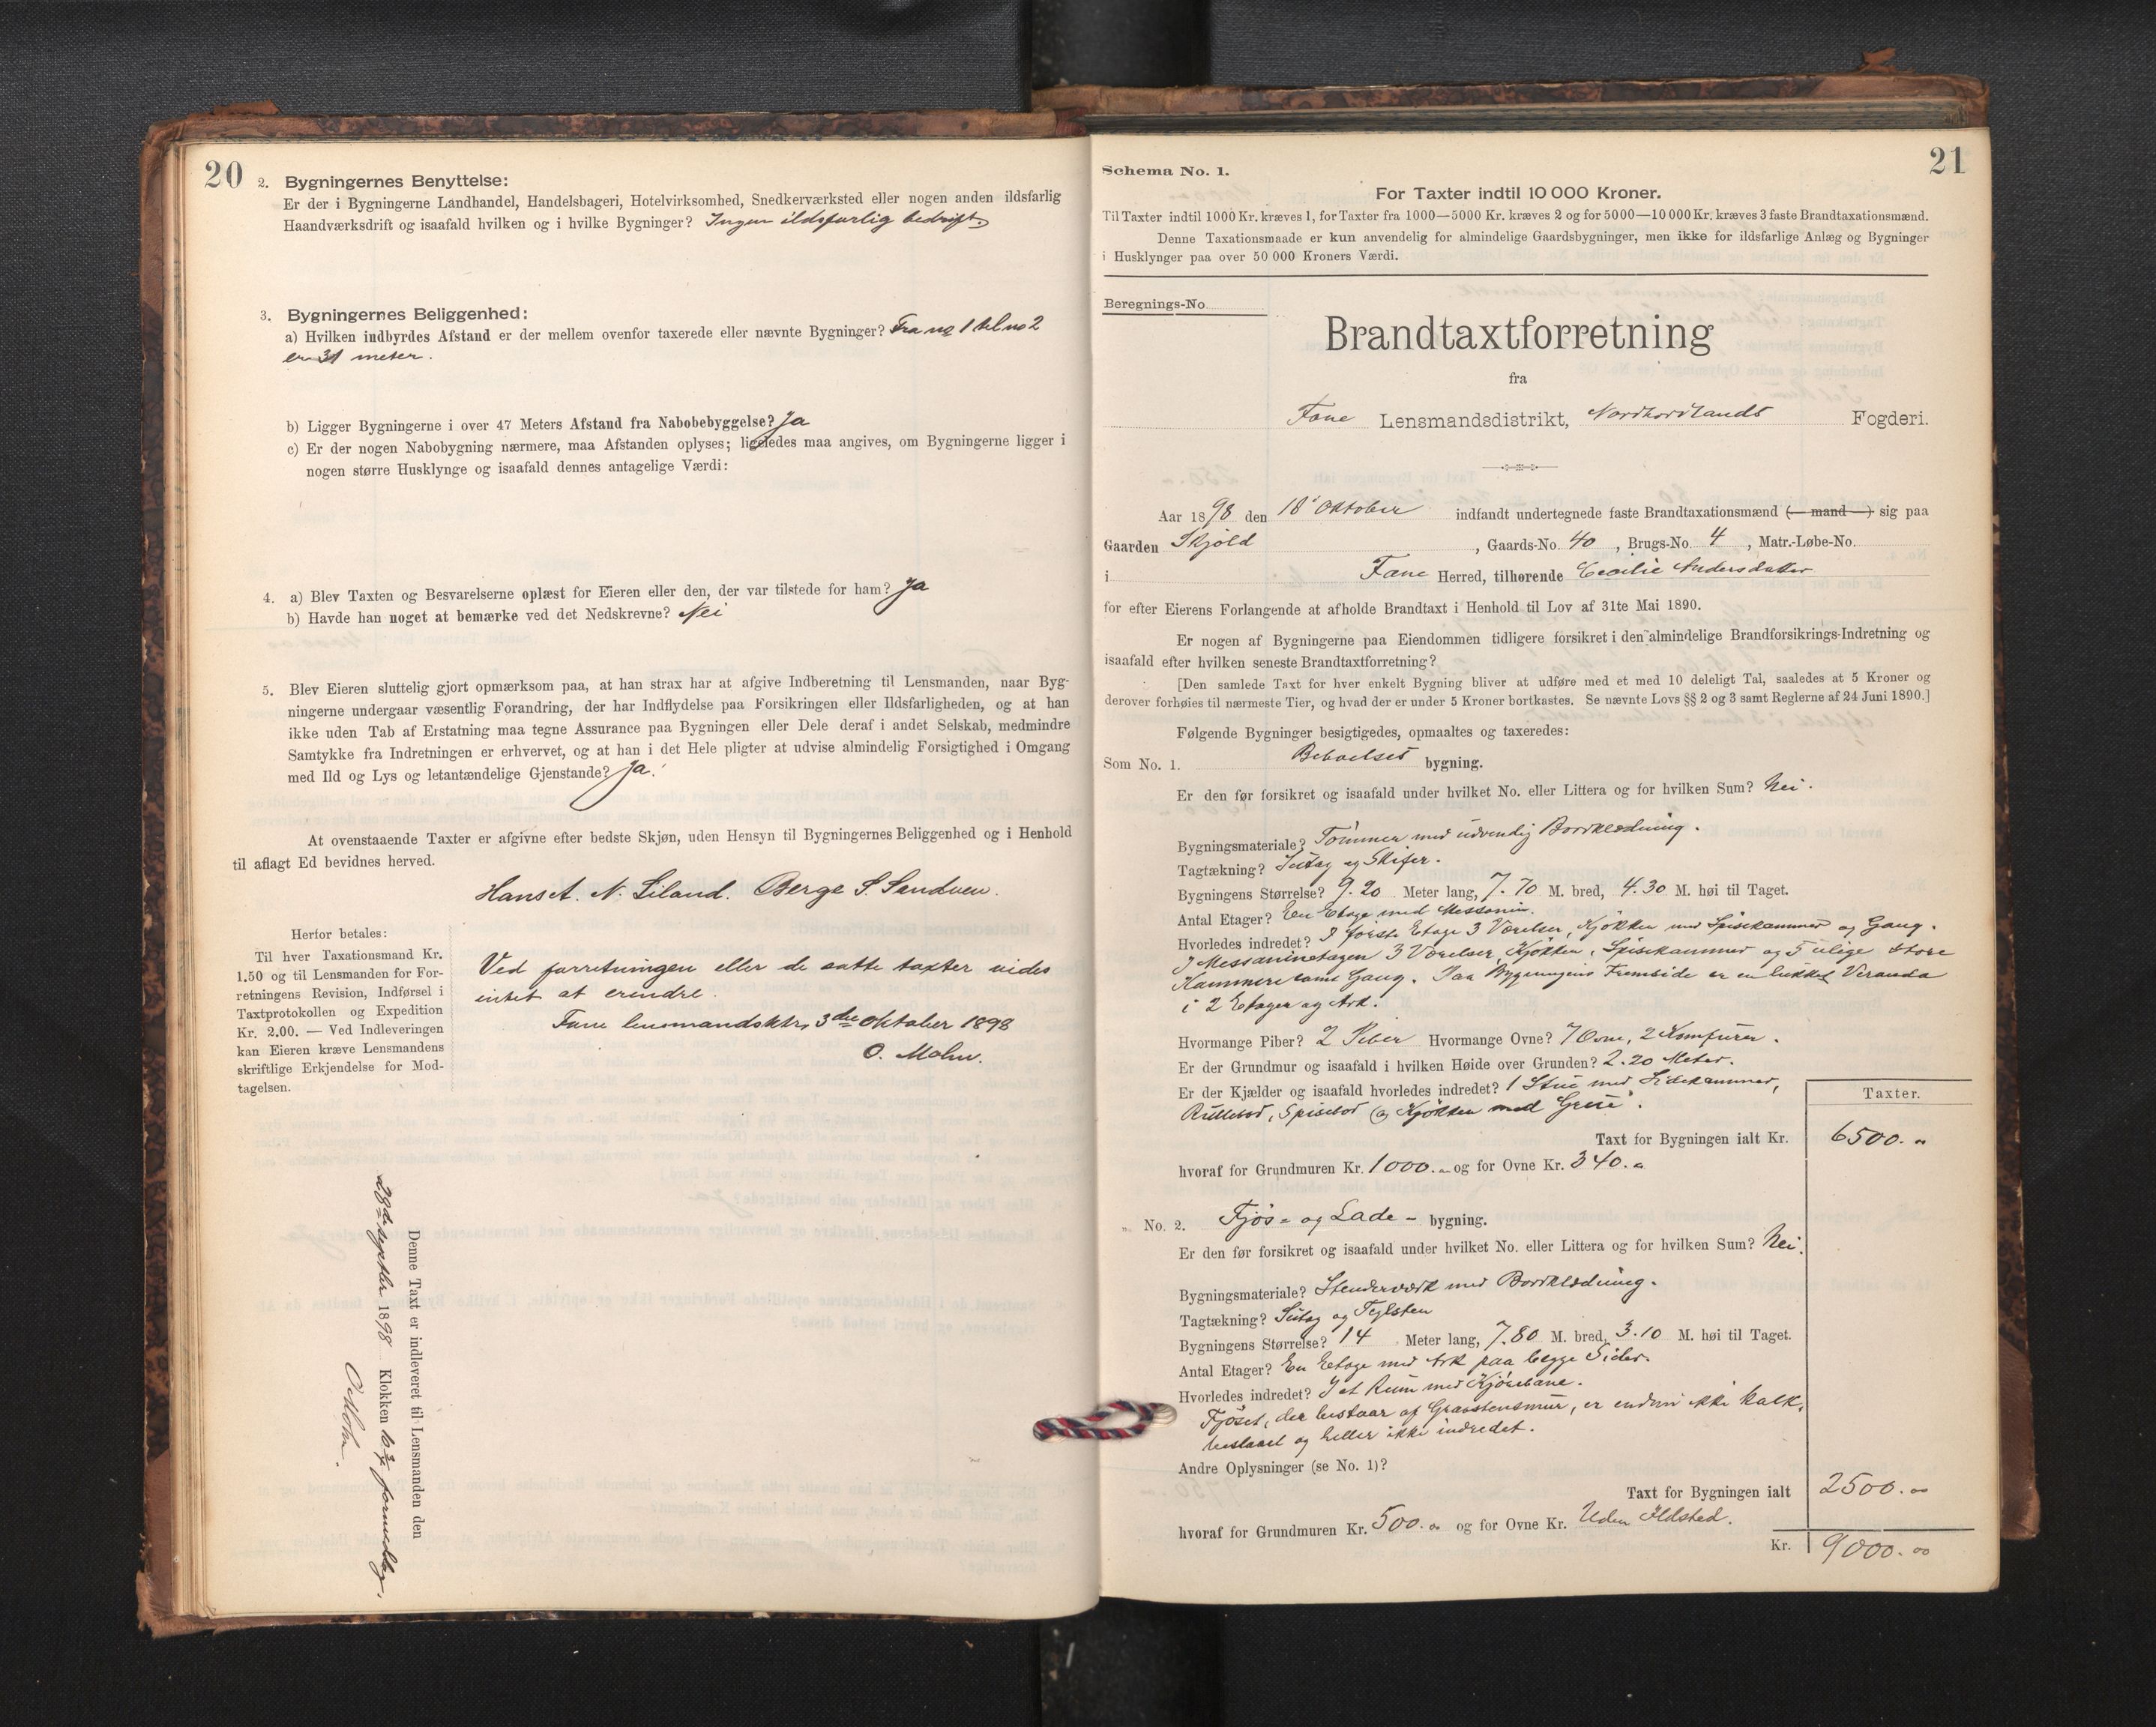 20
2. Bygningernes Benyttelse:
Er der i Bygningerne Landhandel, Handelsbageri, Hotelvirksomhed, Snedkerværksted eller nogen anden ildsfarlig
Haandværksdrift og isaafald hvilken og i hvilke Bygninger? Ingen ildsfarlig bedrift
3. Bygningernes Beliggenhed:
a) Hvilken indbyrdes Afstand er der mellem ovenfor taxerede eller nævnte Bygninger? Fra no 1 til no 2
er 31 meter.
b) Ligger Bygningerne i over 47 Meters Afstand fra Nabobebyggelse? Ja
c) Er der nogen Nabobygning nærmere, maa Afstanden oplyses; ligeledes maa angives, om Bygningerne ligger i
nogen større Husklynge og isaafald dennes antagelige Værdi:
4. a) Blev Taxten og Besvarelserne oplæst for Eieren eller den, der var tilstede for ham? Ja
b) Havde han noget at bemærke ved det Nedskrevne? Nei
5. Blev Eieren sluttelig gjort opmærksom paa, at han strax har at afgive Indberetning til Lensmanden, naar Byg-
ningerne undergaar væsentlig Forandring, der har Indflydelse paa Forsikringen eller Ildsfarligheden, og at han
ikke uden Tab af Erstatning maa tegne Assurance paa Bygningen eller Dele deraf i andet Selskab, medmindre
Samtykke fra Indretningen er erhvervet, og at han i det Hele pligter at udvise almindelig Forsigtighed i Omgang
med Ild og Lys og letantændelige Gjenstande? Ja.
At ovenstaaende Taxter er afgivne efter bedste Skjøn, uden Hensyn til Bygningernes Beliggenhed og i Henhold
til aflagt Ed bevidnes herved.
Hans A. N. Liland. Berge S. Sandven.
Herfor betales:
Til hver Taxationsmand Kr.
1.50 og til Lensmanden for For-
retningens Revision, Indførsel i
Taxtprotokollen og Expedition
Kr. 2.00. — Ved Indleveringen
kan Eieren kræve Lensmandens
skriftlige Erkjendelse for Mod-
tagelsen.
Ved forretningen eller de satte taxter vides
intet at erindre.
Fane lensmandsktr, 3die oktober 1898
O. Mohn.
Denne Taxt er indleveret til Lensmanden den
28de septbr 1898 Klokken formiddag.
O Mohn.
21
Schema No. 1.
For Taxter indtil 10 000 Kroner.
Til Taxter indtil 1000 Kr. kræves 1, for Taxter fra 1000—5000 Kr. kræves 2 og for 5000—10 000 Kr. kræves 3 faste Brandtaxationsmænd.
Denne Taxationsmaade er kun anvendelig for almindelige Gaardsbygninger, men ikke for ildsfarlige Anlæg og Bygninger
i Husklynger paa over 50 000 Kroners Værdi.
Beregnings-No
Brandtaxtforretning
fra
Fane Lensmandsdistrikt, Nordhordlands Fogderi.
Aar 1898 den 18' Oktober indfandt undertegnede faste Brandtaxationsmænd (— mand —) sig paa
Gaarden Skjold, Gaards-No. 40, Brugs-No. 4, Matr.-Løbe-No.
i Fane Herred, tilhørende Cecilie Andersdatter
for efter Eierens Forlangende at afholde Brandtaxt i Henhold til Lov af 31te Mai 1890.
Er nogen af Bygningerne paa Eiendommen tidligere forsikret i den almindelige Brandforsikrings-Indretning og
isaafald efter hvilken seneste Brandtaxtforretning?
[Den samlede Taxt for hver enkelt Bygning bliver at udføre med et med 10 deleligt Tal, saaledes at 5 Kroner og
derover forhøies til nærmeste Tier, og hvad der er under 5 Kroner bortkastes. Se nævnte Lovs §§ 2 og 3 samt Reglerne af 24 Juni 1890.]
Følgende Bygninger besigtigedes, opmaaltes og taxeredes:
Som No. 1. Beboelses bygning.
Er den før forsikret og isaafald under hvilket No. eller Littera og for hvilken Sum? Nei.
Bygningsmateriale? Tømmer med udvendig Bordklædning.
Tagtækning? Sutag og Skifer.
Bygningens Størrelse? 9.20 Meter lang, 7.70 M. bred, 4.30 M. høi til Taget.
Antal Etager? En Etage med Messanin.
Hvorledes indredet? I første Etage 3 Værelser, Kjøkken med Spisekammer og Gang.
I Messaninetagen 3 Værelser, Kjøkken, Spisekammer og 5 ulige store
Kammere samt Gang. Paa Bygningens Fremside er en lukket Veranda
i 2 Etager og Ark.
Hvormange Piber? 2 Piber Hvormange Ovne? 7 Ovne, 2 Komfurer.
Er der Grundmur og isaafald i hvilken Høide over Grunden? 2.20 Meter.
Er der Kjælder og isaafald hvorledes indredet? 1 Stue med Sidekammer,
Rullebod, Spisebod og Kjøkken med Grue.
Taxter.
Taxt for Bygningen ialt Kr. 6500.00
hvoraf for Grundmuren Kr. 1000.00 og for Ovne Kr. 340.00
„ No. 2. Fjøs- og Lade- bygning.
Er den før forsikret og isaafald under hvilket No. eller Littera og for hvilken Sum? Nei.
Bygningsmateriale? Stenderværk med Bordklædning.
Tagtækning? Sutag og Teglsten
Bygningens Størrelse? 14 Meter lang, 7.80 M. bred, 3.10 M. høi til Taget.
Antal Etager? En Etage med Ark paa begge Sider.
Hvorledes indredet? I et Rum med Kjørebane.
Fjøset, der bestaar af Graastensmur, er endnu ikke kalk-
beslaaet og heller ikke indredet.
Andre Oplysninger (se No. 1)?
Taxt for Bygningen ialt 2500.00
hvoraf for Grundmuren Kr. 500.00 og for Ovne Kr. Uden Ildsted.
Kr. 9000.00